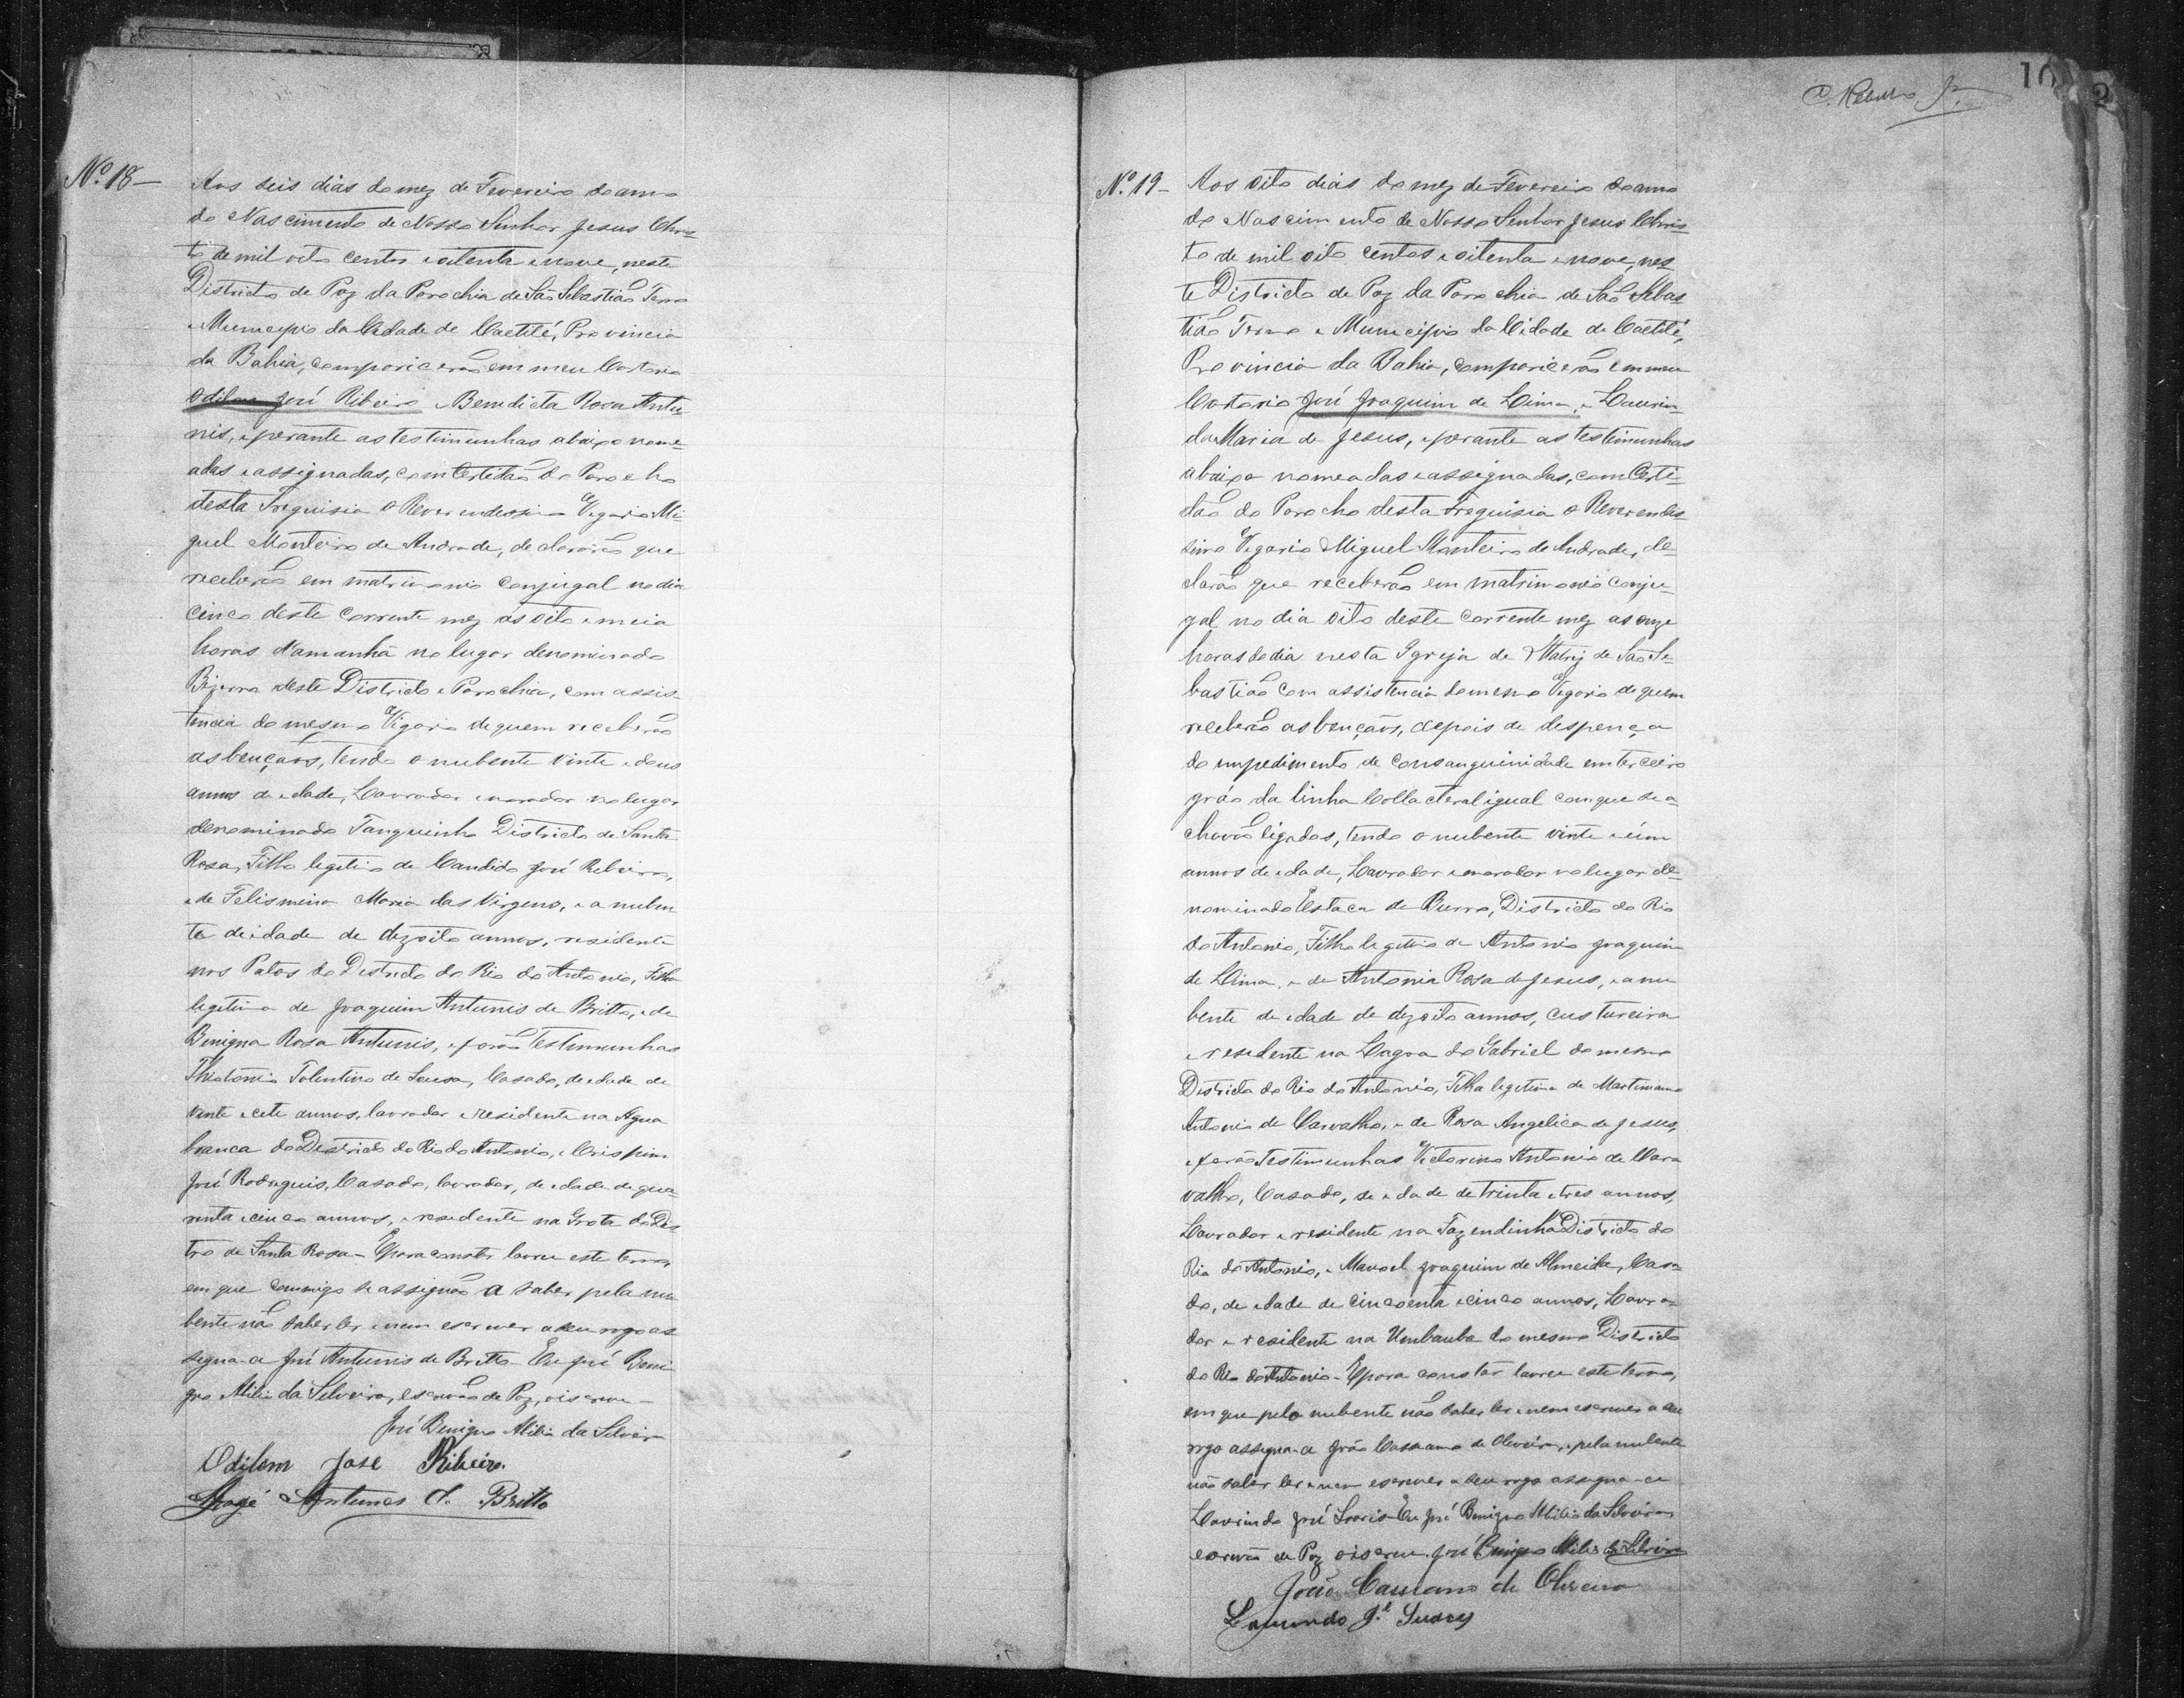 Nº 18 —
Aos seis dias do mez de Fevereiro do anno
do Nascimento de Nosso Senhor Jesus Chris-
to de mil oito centos e oitenta e nove, neste
Districto de Paz da Parochia de São Sebastião Termo
e Municipio da Cidade de Caetité, Provincia
da Bahia, comparicerão em meu Cartorio
Odilon José Ribeiro e Benedicta Rosa Antu-
nis, e perante as testimunhas abaixo nome-
adas e assignadas, com Certidão do Parocho
desta Freguisia o Reverendissimo Vigario Mi-
guel Monteiro de Andrade, declararão que
receberão em matrimonio conjugal no dia
cinco deste corrente mez ás oito e meia
horas d'amanhã no lugar denominado
Bizerra deste Districto e Parochia, com assis-
tencia do mesmo Vigario de quem receberão
as bençaõs, tendo o nubente vinte e dous
annos de idade, Lavrador e morador no lugar
denominado Tanquinho Districto de Santa
Rosa, Filho legitimo de Candido José Ribeiro,
e de Felismina Maria das Virgens, e a nuben
te de idade de dezoito annos, residente
nos Patos do Districto do Rio do Antonio, Filha
legitima de Joaquim Antunis de Britto, e de
Benigna Rosa Antunis, e forão Testimunhas
Thiotonio Tolentino de Sousa, Casado, de idade de
vinte e cete annos, lavrador e residente na Agua
branca do Districto do Rio do Antonio, e Crispim
José Rodriguis, Casado, lavrador, de idade de qua-
renta e cinco annos, e residente na Grota do Dis
tro de Santa Rosa — E para constar lavrei este termo,
em que commigo se assignão a saber pela nu
bente não saber ler e nem escrever a seu rogo as
signa-a José Antunis de Britto — Eu José Beni
gno Milia da Silveira, escrivão de Paz, o iscrevi —
José Benigno Milia da Silveira
Odilom Jose Ribeiro.
Antunes d. Britto
Nº 19 —
Aos oito dias do mez de Fevereiro do anno
do Nascimento de Nosso Senhor Jesus Chris-
to de mil oito centos e oitenta e nove, nes
te Districto de Paz da Parochia de São Sebas
tião Termo e Municipio da Cidade de Caetité,
Provincia da Bahia, comparicerão em meu
Cartorio José Joaquim de Lima, e Laurin-
da Maria de Jesus, e perante as testimunhas
abaixo nomeadas e assignadas, com Certi-
dão do Parocho desta Freguisia o Reverendis
simo Vigario Miguel Monteiro de Andrade, de-
clarão que receberão em matrimonio conju-
gal no dia oito deste corrente mez as onze
horas do dia nesta Igreja de Matriz de São Se-
bastião com assistencia do mesmo Vigario de quem
receberão as bençaõs, depois de despença
do impedimento de consanguinidade em terceiro
gráo da linha Collacteral igual com que se a-
chavão ligados, tendo o nubente vinte e úm
annos de idade, Lavrador e morador no lugar de-
nominado Estaca de Burro, Districto do Rio
do Antonio, Filho legitimo de Antonio Joaquim
de Lima, e de Antonia Rosa de Jesus, e a nu
bente de idade de dezoito annos, custureira
e residente na Lagoa do Gabriel do mesmo
Districto do Rio do Antonio, Filha legitima de Martiniano
Antonio de Carvalho, e de Rosa Angelica de Jesus,
e forão Testimunhas Victorino Antonio de Cara
valho, Casado, de idade de trinta e tres annos,
Lavrador e residente na Fazendinha Districto do
Rio do Antonio, e Manoel Joaquim de Almeida, Casa-
do, de idade de cincoenta e cinco annos, Lavra-
dor e residente na Umbauba do mesmo Districto
do Rio do Antonio — E para constar lavrei este termo,
em que pelo nubente não saber ler e nem escrever a seu
rogo assigna-a João Cassiano de Oliveira, e pela nubente
não saber ler e nem escrever a seu rogo assigna-a
Laurindo José Soaris — Eu José Benigno Milia da Silveira
escrivão de Paz o iscrevi. José Benigno Milia da Silveira
João Cassiano de Oliveira
10
2